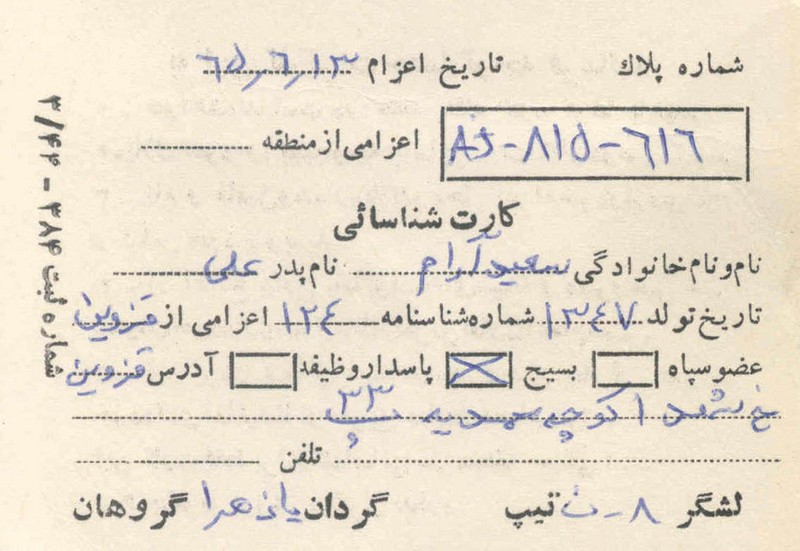 شماره پلاك تاریخ اعزام ٦٥٫٦٫١٣
AJ-٨١٥-٦١٦ اعزامی از منطقه
کارت شناسائی
نام و نام خانوادگی سعید آرام نام پدر علی
تاریخ تولد ١٣٤٧ شماره شناسنامه ١٢٤ اعزامی از قزوین
عضو سپاه بسیج پاسدار وظیفه آدرس قزوین
خ کوچه پ ٣٣
تلفن
لشگر ٨- ن تیپ گردان یازهرا گروهان
شماره ثبت ۳۸۴ - ۳/۴۴